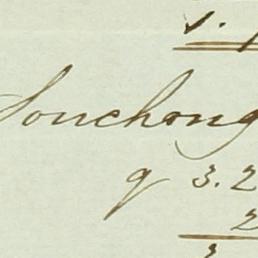 Souchong
q 3.2
2